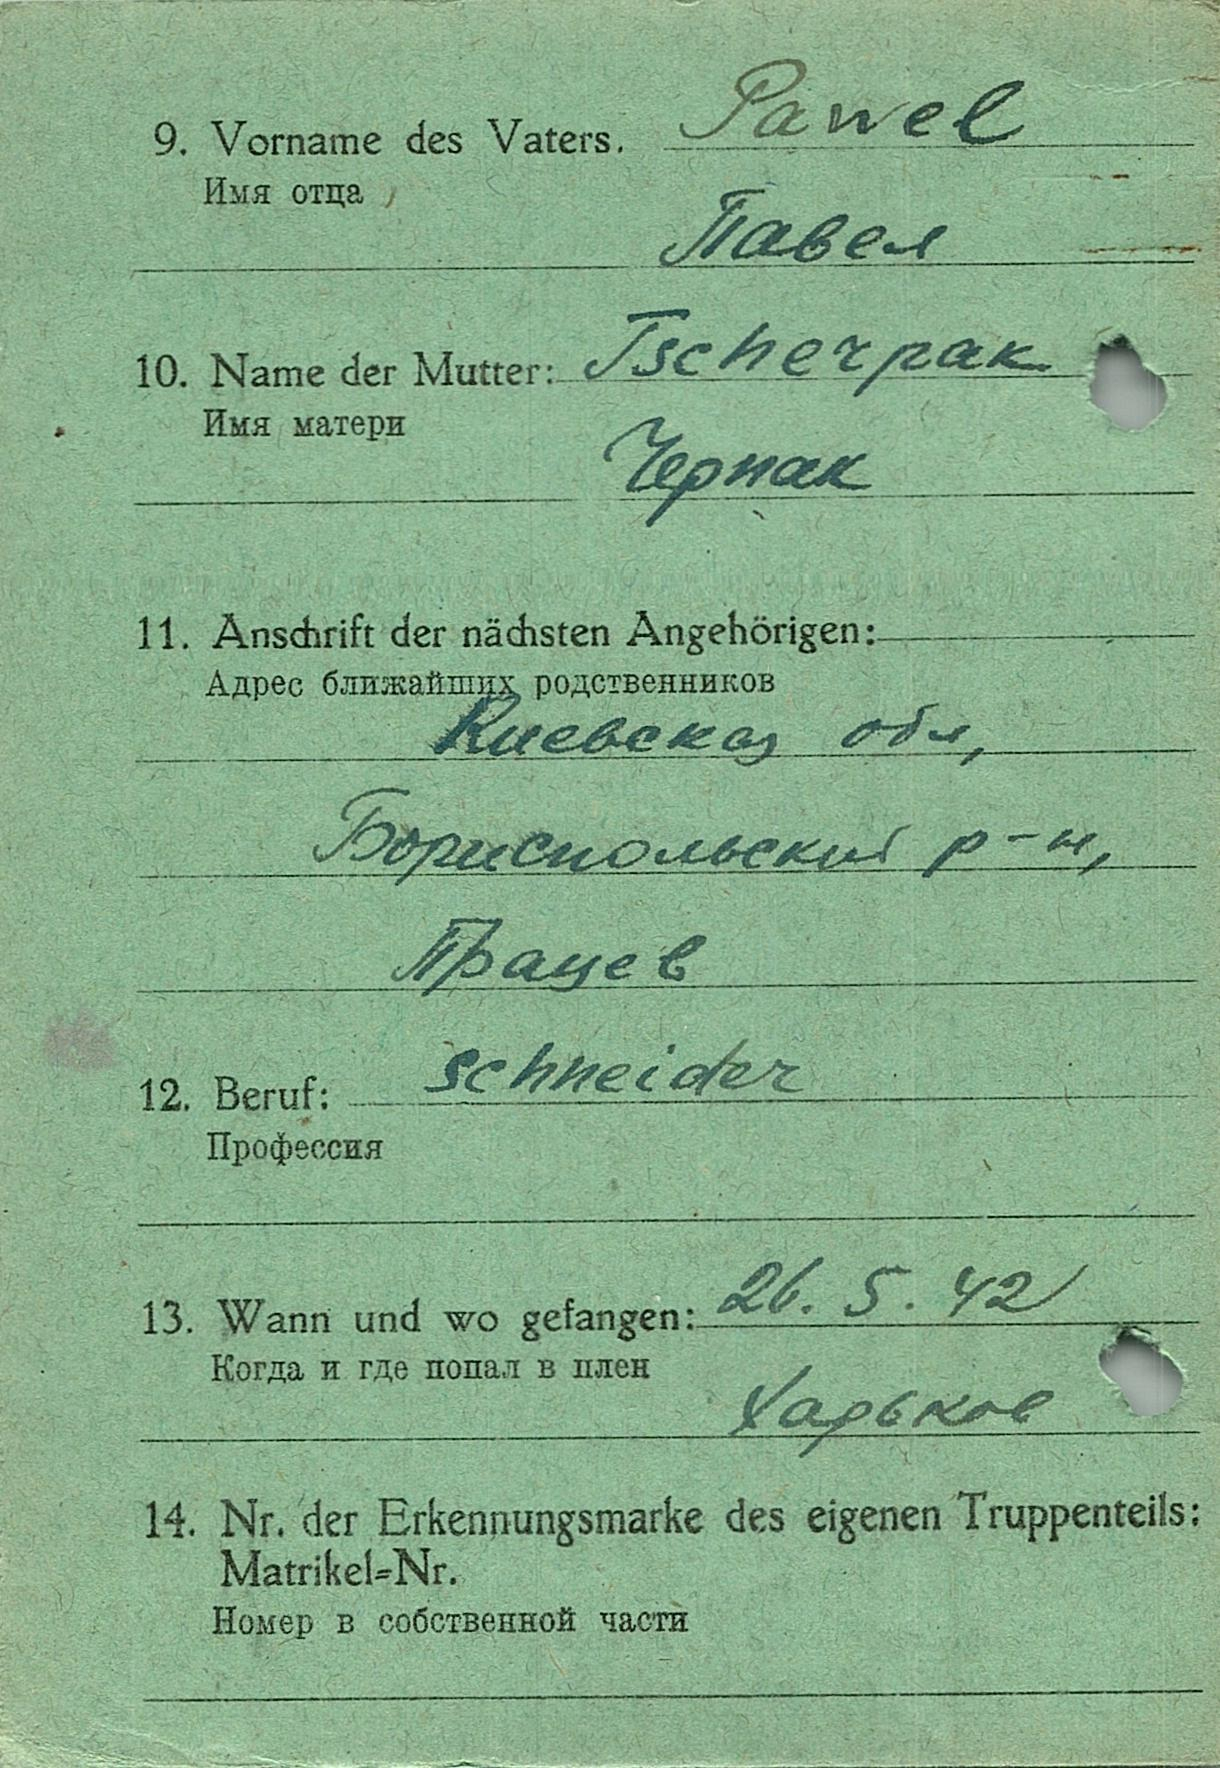 9. Vorname des Vaters. Pawel
Имя отца
Павел
10. Name der Mutter: Tscherpak
Имя матери
Черпак
11. Anschrift der nächsten Angehörigen:
Адрес ближайших родственников
Киевская обл,
Бориспольский р-н,
Працев
12. Beruf: schneider
Профессия
13. Wann und wo gefangen: 26. 5. 42
Когда и где попал в плен
Харьков
14. Nr. der Erkennungsmarke des eigenen Truppenteils:
Matrikel=Nr.
Номер в собственной части